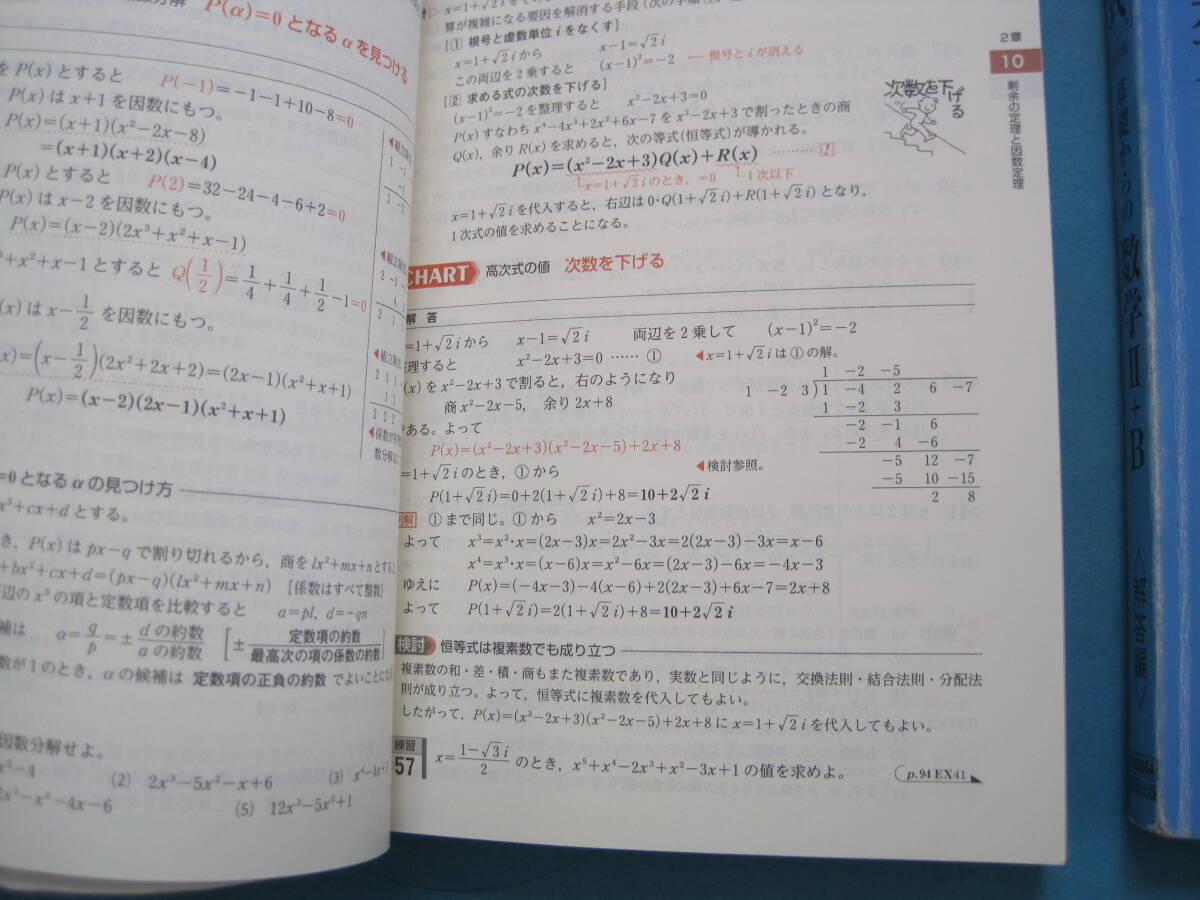 P(α)=0 となるαを見つける
を P(x) とすると P(-1)=-1-1+10-8=0
P(x) は x+1 を因数にもつ。
P(x)=(x+1)(x²-2x-8)
=(x+1)(x+2)(x-4)
P(x) とすると P(2)=32-24-4-6+2=0
P(x) は x-2 を因数にもつ。
P(x)=(x-2)(2x³+x²+x-1)
³+x²+x-1 とすると Q(1/2)=1/4+1/4+1/2-1=0
(x) は x-1/2 を因数にもつ。
x)=(x-1/2)(2x²+2x+2)=(2x-1)(x²+x+1)
P(x)=(x-2)(2x-1)(x²+x+1)
=0 となる α の見つけ方
x²+cx+d とする。
き, P(x) は px-q で割り切れるから, 商を lx²+mx+n とすると
+bx²+cx+d=(px-q)(lx²+mx+n) [係数はすべて整数]
辺の x³ の項と定数項を比較すると a=pl, d=-qn
補は α=q/p=±dの約数/aの約数 [±定数項の約数/最高次の項の係数の約数]
数が1のとき, α の候補は 定数項の正負の約数 でよいことにな
因数分解せよ。
x²-4 (2) 2x³-5x²-x+6 (3)
2x³-x²-4x-6 (5) 12x³-5x²+1
算が複雑になる要因を解消する手段
[1] 根号と虚数単位 i をなくす]
x=1+√2 i から x-1=√2 i
この両辺を2乗すると (x-1)²=-2 ← 根号と i が消える
[2] 求める式の次数を下げる]
(x-1)²=-2 を整理すると x²-2x+3=0
P(x) すなわち x⁴-4x³+2x²+6x-7 を x²-2x+3 で割ったときの商
Q(x), 余り R(x) を求めると, 次の等式(恒等式)が導かれる。
P(x)=(x²-2x+3)Q(x)+R(x)
x=1+√2 i のとき, =0 1次以下
x=1+√2 i を代入すると, 右辺は 0・Q(1+√2 i)+R(1+√2 i) となり,
1次式の値を求めることになる。
CHART 高次式の値 次数を下げる
解答
=1+√2 i から x-1=√2 i 両辺を2乗して (x-1)²=-2
理すると x²-2x+3=0 …… ① ◀x=1+√2 i は①の解。
(x) を x²-2x+3 で割ると, 右のようになり
商 x²-2x-5, 余り 2x+8
ある。よって
P(x)=(x²-2x+3)(x²-2x-5)+2x+8
=1+√2 i のとき, ①から ◀検討参照。
P(1+√2 i)=0+2(1+√2 i)+8=10+2√2 i
1 -2 -5
1 -2 3)1 -4 2 6 -7
1 -2 3
-2 -1 6
-2 4 -6
-5 12 -7
-5 10 -15
2 8
解 ①まで同じ。①から x²=2x-3
よって x³=x²・x=(2x-3)x=2x²-3x=2(2x-3)-3x=x-6
x⁴=x³・x=(x-6)x=x²-6x=(2x-3)-6x=-4x-3
ゆえに P(x)=(-4x-3)-4(x-6)+2(2x-3)+6x-7=2x+8
よって P(1+√2 i)=2(1+√2 i)+8=10+2√2 i
検討 恒等式は複素数でも成り立つ
複素数の和・差・積・商もまた複素数であり, 実数と同じように, 交換法則・結合法則・分配法
則が成り立つ。よって, 恒等式に複素数を代入してもよい。
したがって, P(x)=(x²-2x+3)(x²-2x-5)+2x+8 に x=1+√2 i を代入してもよい。
練習
57 x=(1-√3 i)/2 のとき, x⁵+x⁴-2x³+x²-3x+1 の値を求めよ。
p.94 EX41
2章
10
剰余の定理と因数定理
次数を下げる
数学Ⅱ+B
〈解答編〉